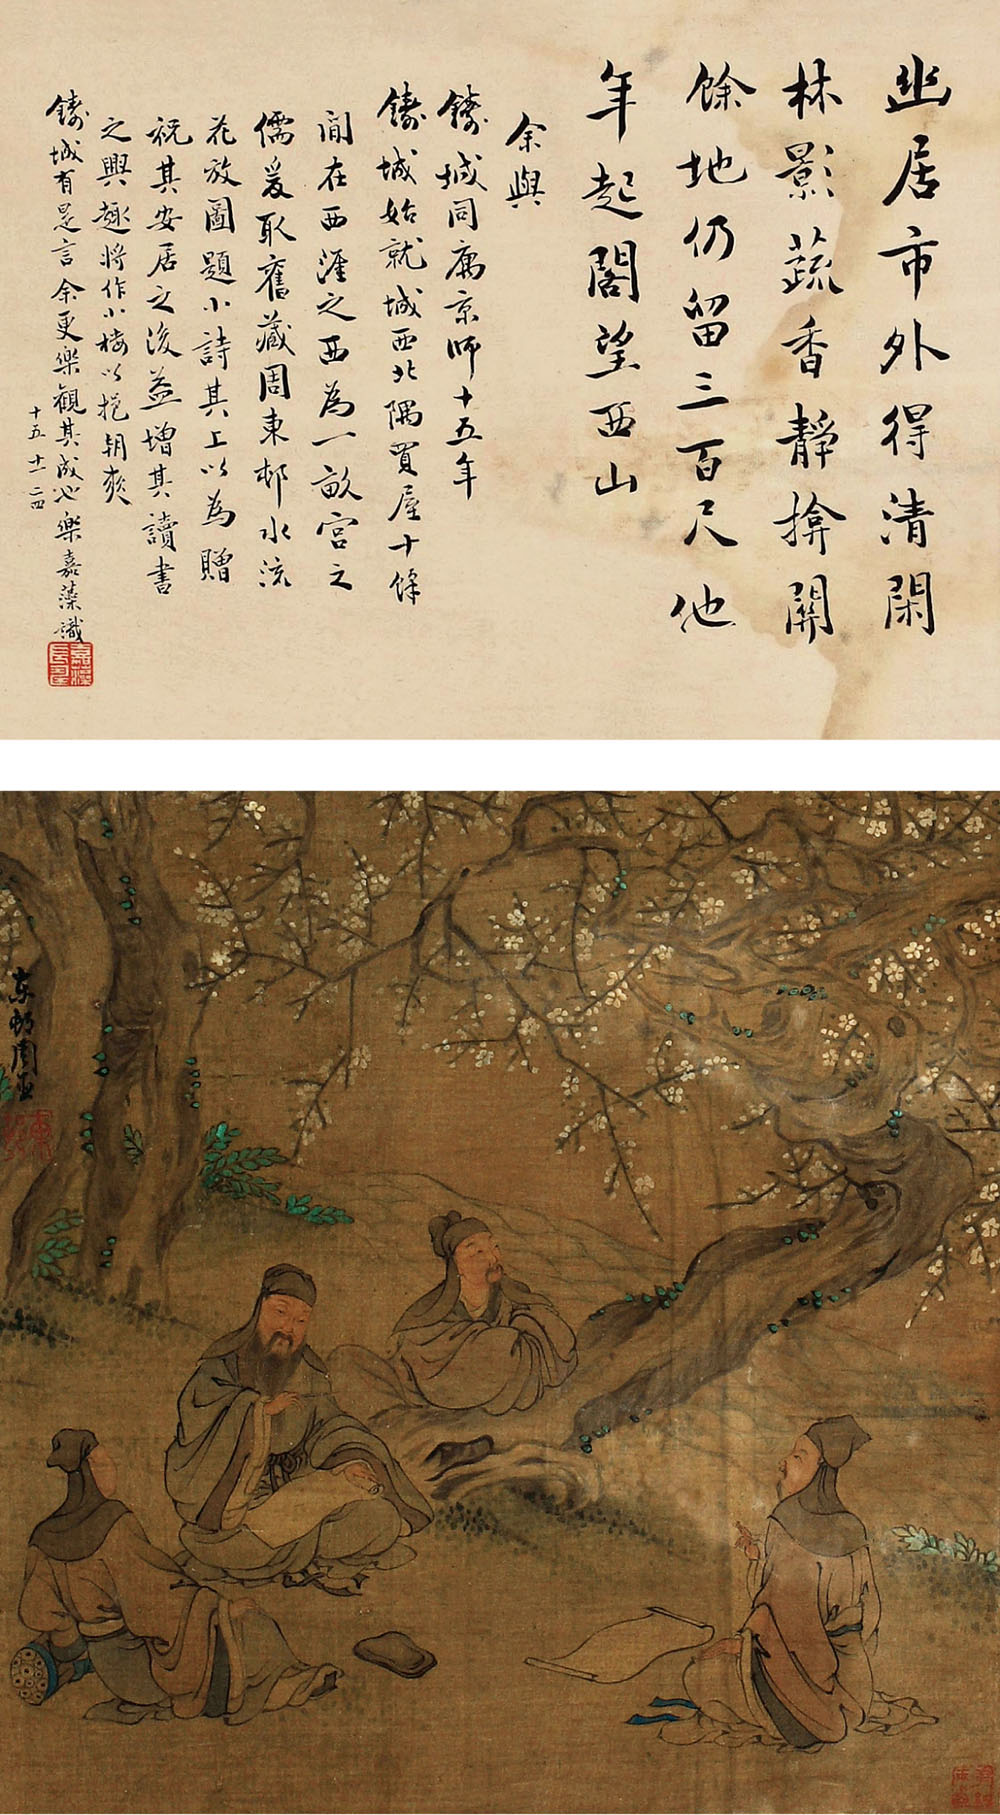 幽居市外得清閑
林影蔬香靜揜關
餘地仍留三百尺他
年起閣望西山
余與
鑄城同寓京師十五年
鑄城始就城西北隅買屋十餘
間在西涯之西為一畝宮之
儒爰取舊藏周東邨水流
花放圖題小詩其上以為贈
祝其安居之後益增其讀書
之興趣將作小樓以挹朝爽
鑄城有是言余更樂觀其成也樂嘉藻識
十五十一二四
東邨周臣